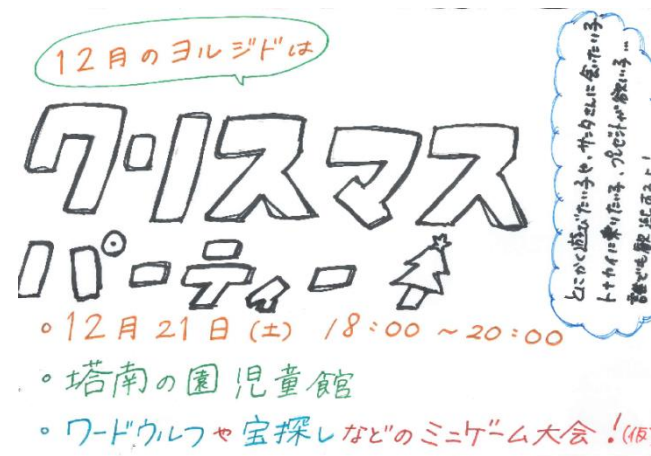 12月のヨルジドは
クリスマス
パーティー
とにかく遊びたい子や、サンタさんに会いたい子
トナカイに乗りたい子、プレゼントが欲しい子…
誰でも歓迎するよ!
。12月21日(土) 18:00～20:00
。塔南の園児童館
。ワードウルフや宝探しなどのミニゲーム大会!(仮